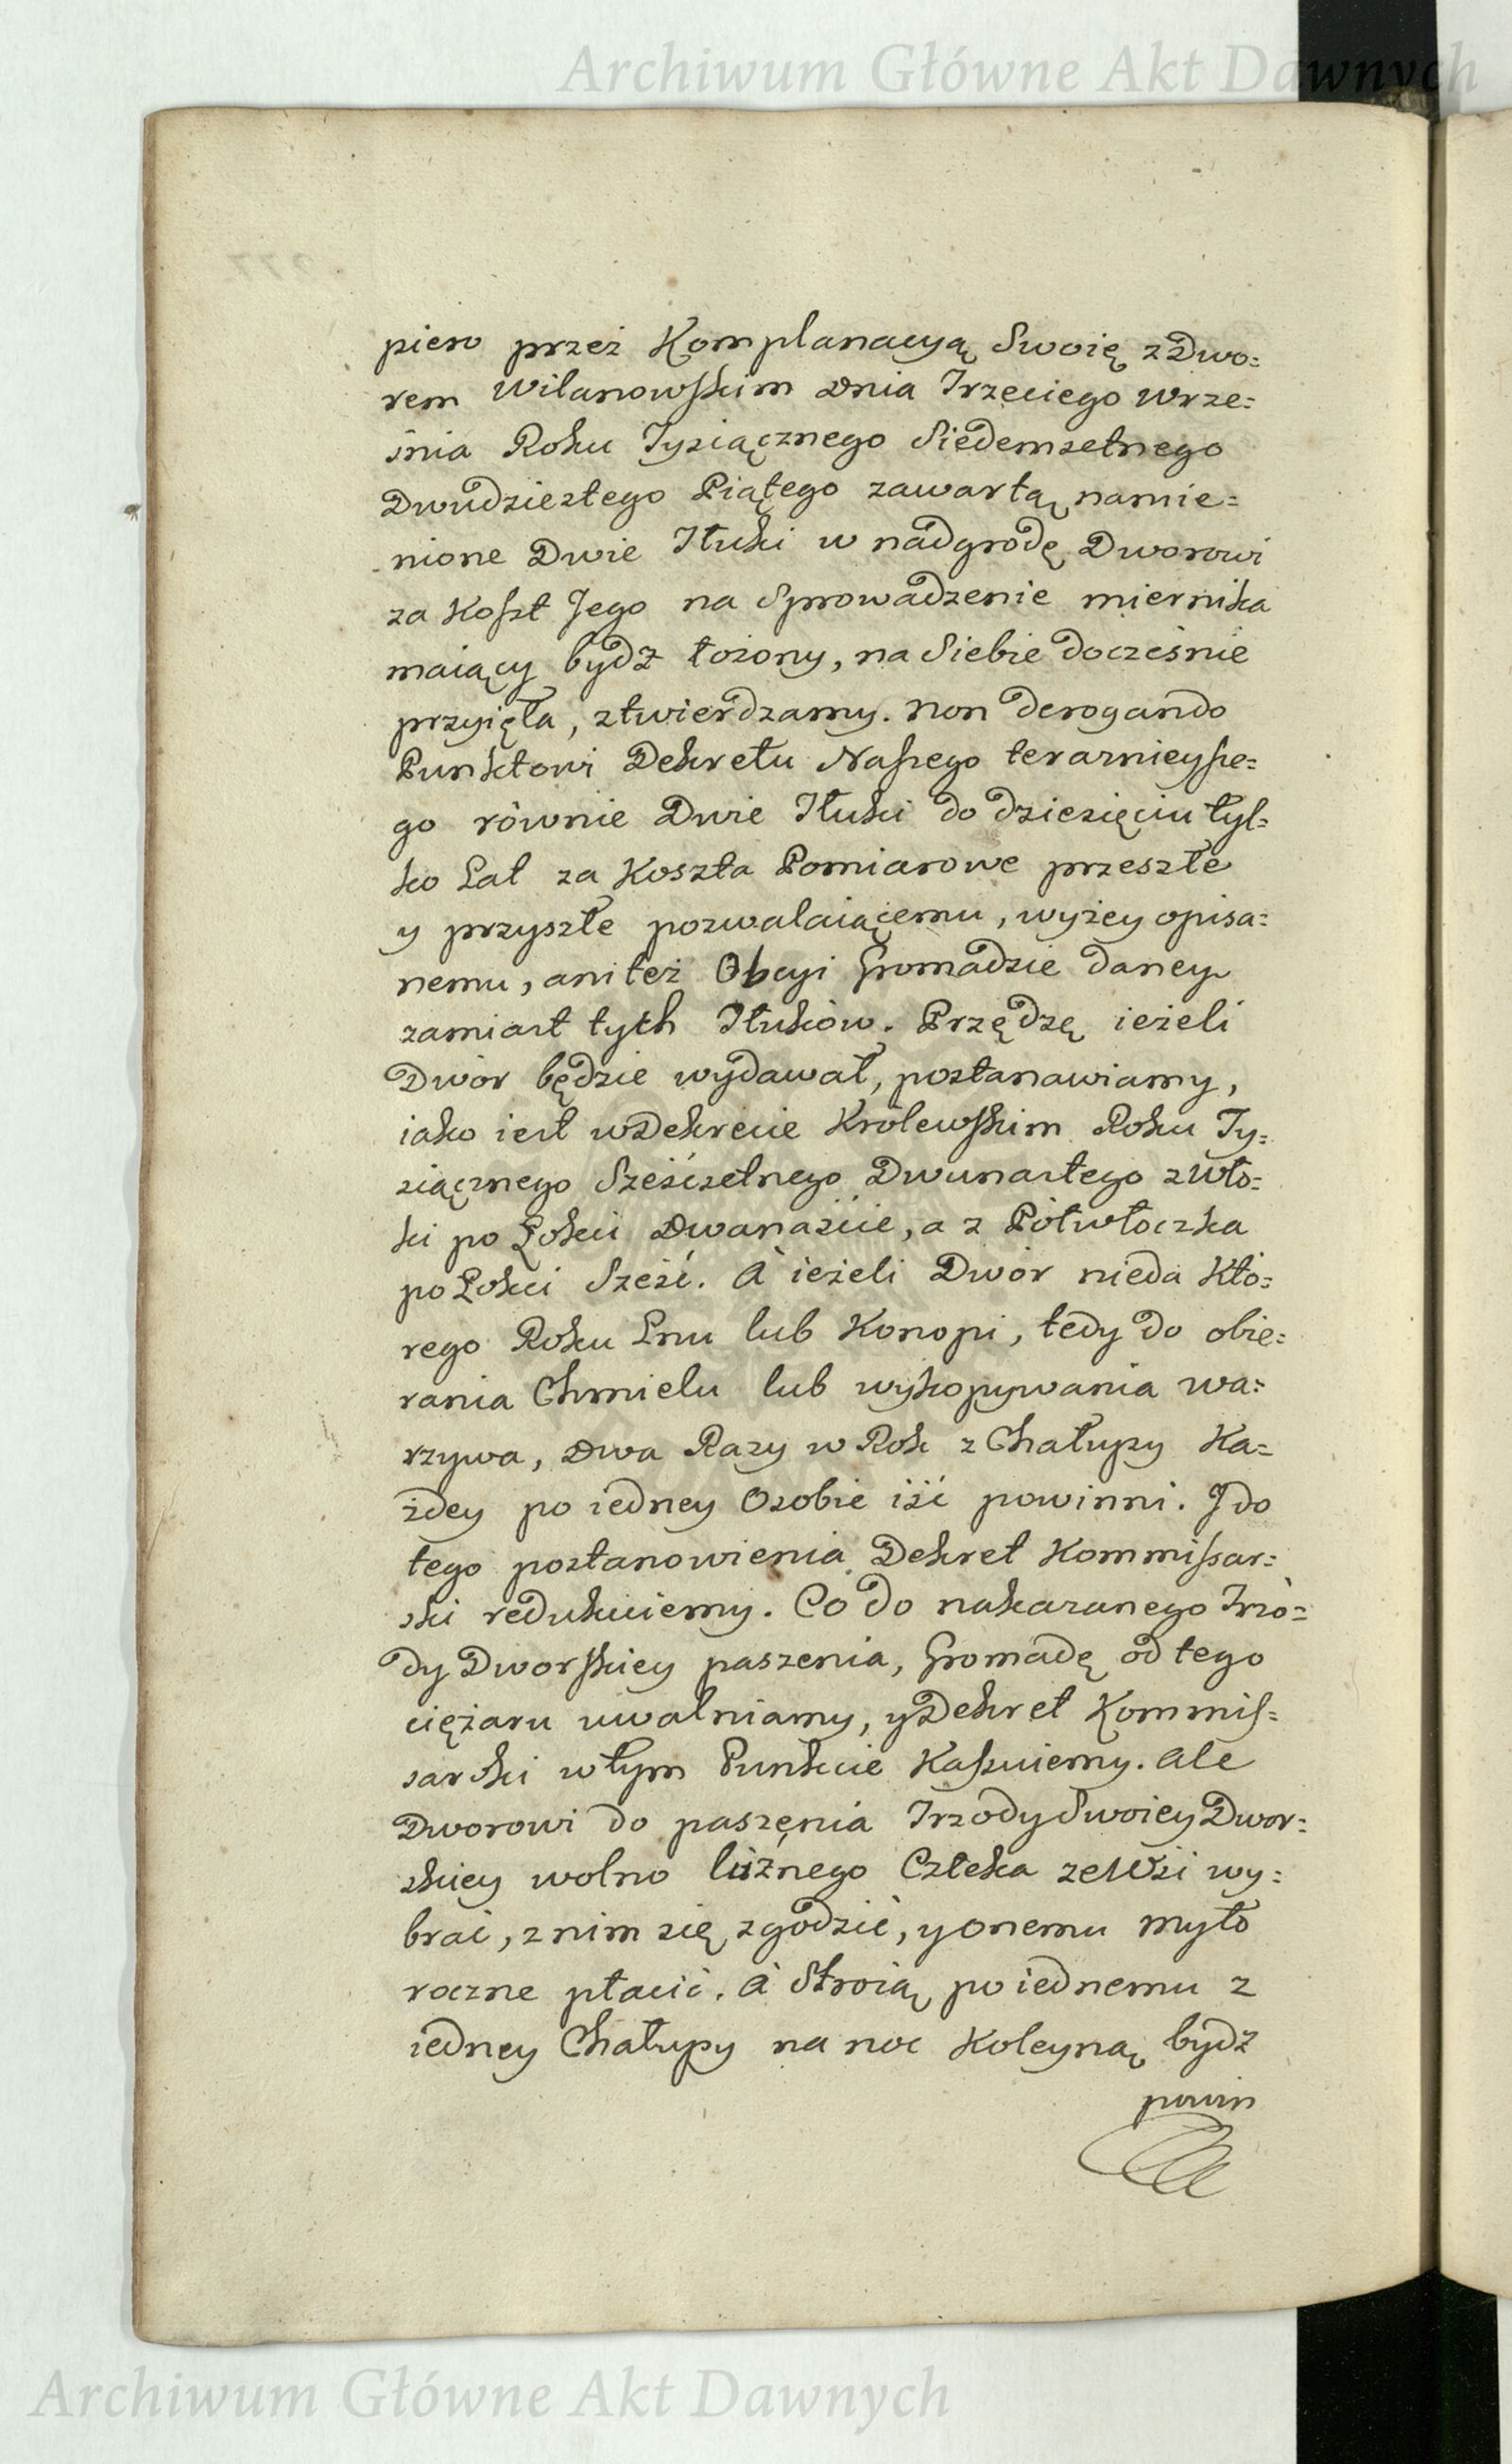 Archiwum Główne Akt Dawnych
piero przez Komplanacyą Swoię z Dwo=
rem Wilanowskim Dnia Trzeciego Wrze=
śnia Roku Tysiącznego Siedemsetnego
Dwudziestego Piątego zawartą namie=
nione Dwie Sztuki w nadgrodę Dworowi
za Koszt Jego na Sprowadzenie miernika
maiący bydź łożony, na Siebie docześnie
przyięła, ztwierdzamy. Non derogando
Punktowi Dekretu Naszego teraznieysze=
go równie Dwie Sztuki do dziesięciu tyl=
ko Lat za Koszta Pomiarowe przeszłe
y przyszłe pozwalaiącemu, wyżey opisa=
nemu, ani też Obcyi Gromadzie daney
zamiast tych Sztuków. Przędzę ieżeli
Dwór będzie wydawał, postanawiamy,
iako iest w Dekrecie Królewskim Roku Ty=
siącznego Sześćsetnego Dwunastego z Wło=
ki po Łokci Dwanaście, a z Półwłoczka
po Łokci Sześć. A ieżeli Dwór nieda Któ=
rego Roku Lnu lub Konopi, tedy do obie=
rania Chmielu lub wykopywania wa=
rzywa, Dwa Razy w Rok z Chałupy Ka=
żdey po iedney Osobie iść powinni. I do
tego postanowienia Dekret Kommissar=
ski redukuiemy. Co do nakazanego Trzo=
dy Dworskiey paszenia, Gromadę od tego
ciężaru uwalniamy, y Dekret Kommis=
sarski w tym Punkcie Kassuiemy. Ale
Dworowi do paszenia Trzody Swoiey Dwor=
skiey wolno luźnego Człeka ze Wsi wy=
brać, z nim się zgodzić, y onemu myto
roczne płacić. A Stróią po iednemu z
iedney Chałupy na noc Koleyną bydź
powin
Archiwum Główne Akt Dawnych